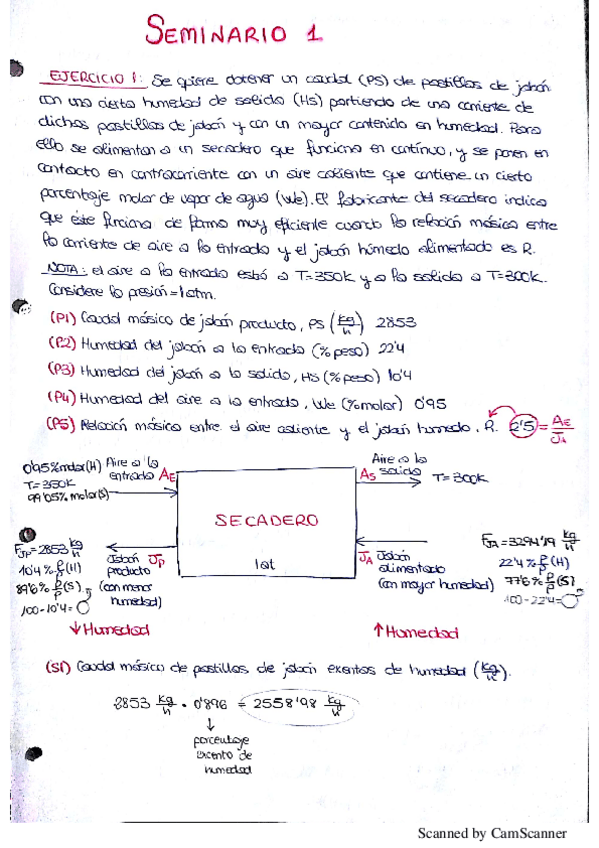 SEMINARIO 1
EJERCICIO 1: Se quiere obtener un caudal (PS) de pastillas de jabón
con una cierta humedad de salida (Hs) partiendo de una corriente de
dichas pastillas de jabón y con un mayor contenido en humedad. Para
ello se alimentan a un secadero que funciona en contínuo, y se ponen en
contacto en contracorriente con un aire caliente que contiene un cierto
porcentaje molar de vapor de agua (We). El fabricante del secadero indica
que éste funciona de forma muy eficiente cuando la relación másica entre
la corriente de aire a la entrada y el jabón húmedo alimentado es R.
NOTA: el aire a la entrada está a T=350K y a la salida a T=300K.
Considere la presión=1atm.
(P1) Caudal másico de jabón producto, PS (kg/h) 2853
(P2) Humedad del jabón a la entrada (% peso) 22'4
(P3) Humedad del jabón a la salida, HS (% peso) 10'4
(P4) Humedad del aire a la entrada, We (% molar) 0'95
(P5) Relación másica entre el aire caliente y el jabón humedo, R. 2'5 = AE/JA
0'95% molar (H) Aire a la entrada AE
T=350K
99'05% molar (S)
Aire a la salida
AS T=300K
SECADERO
1at
FJP=2853 kg/h
10'4% P/P (H)
89'6% P/P (S)
100-10'4=
Jabón producto JP
(con menor humedad)
↓Humedad
JA Jabón alimentado
(con mayor humedad)
FJA=3294'19 kg/h
22'4% P/P (H)
77'6% P/P (S)
100-22'4=
↑Humedad
(S1) Caudal másico de pastillas de jabón exentas de humedad (kg/h).
2853 kg/h · 0'896 = 2558'98 kg/h
↓
porcentaje
exento de
humedad
Scanned by CamScanner